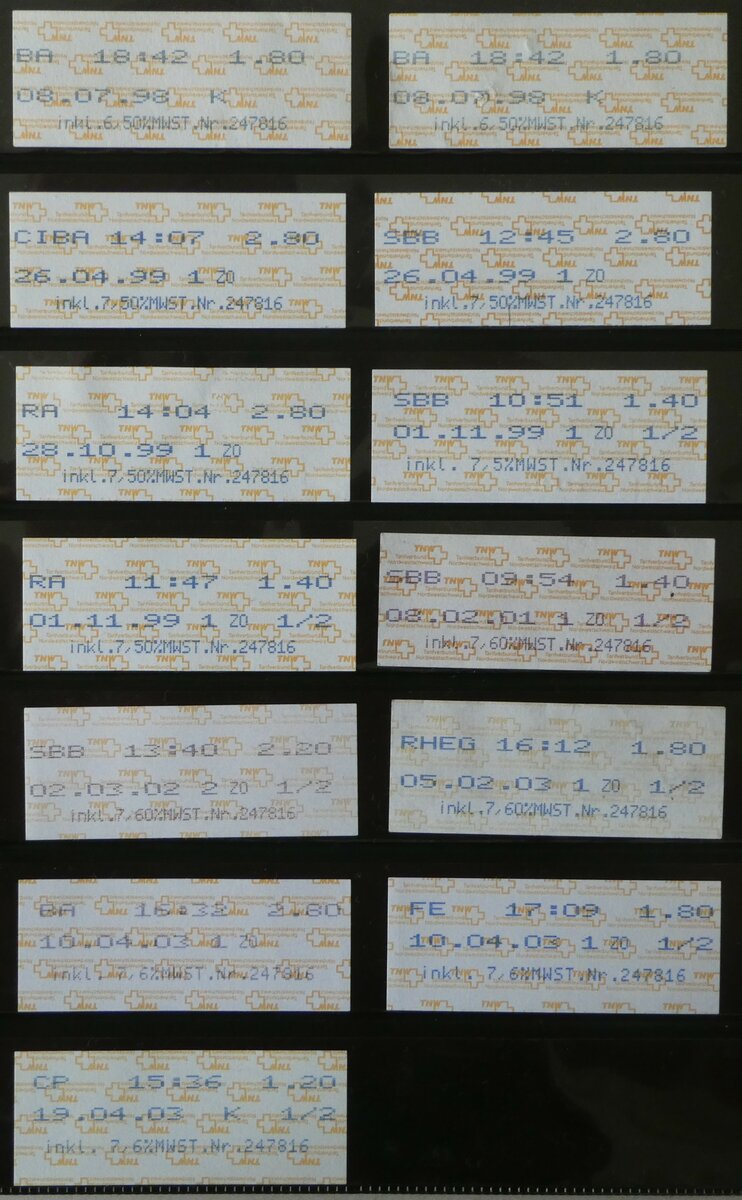 BA 18:42 1.80
08.07.98 K
inkl.6,50%MWST.Nr.247816
BA 18:42 1.80
08.07.98 K
inkl.6,50%MWST.Nr.247816
CIBA 14:07 2.80
26.04.99 1 ZO
inkl.7,50%MWST.Nr.247816
SBB 12:45 2.80
26.04.99 1 ZO
inkl.7,50%MWST.Nr.247816
RA 14:04 2.80
28.10.99 1 ZO
inkl.7,50%MWST.Nr.247816
SBB 10:51 1.40
01.11.99 1 ZO 1/2
inkl. 7,5%MWST.Nr.247816
RA 11:47 1.40
01.11.99 1 ZO 1/2
inkl.7,50%MWST.Nr.247816
SBB 09:54 1.40
08.02.01 1 ZO 1/2
inkl.7,60%MWST.Nr.247816
SBB 13:40 2.20
02.03.02 2 ZO 1/2
inkl.7,60%MWST.Nr.247816
RHEG 16:12 1.80
05.02.03 1 ZO 1/2
inkl.7,60%MWST.Nr.247816
BA 16:32 2.80
10.04.03 1 ZO
inkl. 7,6%MWST.Nr.247816
FE 17:09 1.80
10.04.03 1 ZO 1/2
inkl. 7,6%MWST.Nr.247816
CP 15:36 1.20
19.04.03 K 1/2
inkl. 7,6%MWST.Nr.247816